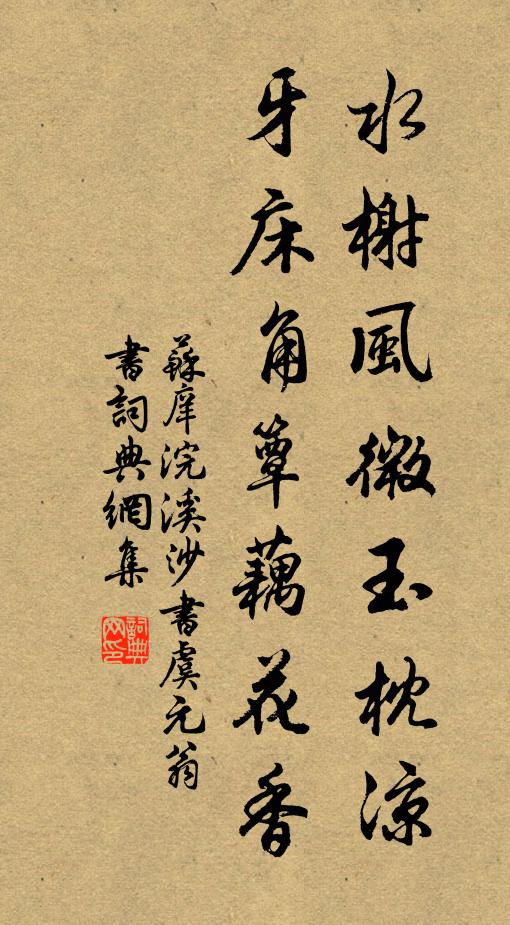 水榭風微玉枕涼
牙床角簟藕花香
蘇庠浣溪沙書虞元翁
書詞典網集
詞典网印